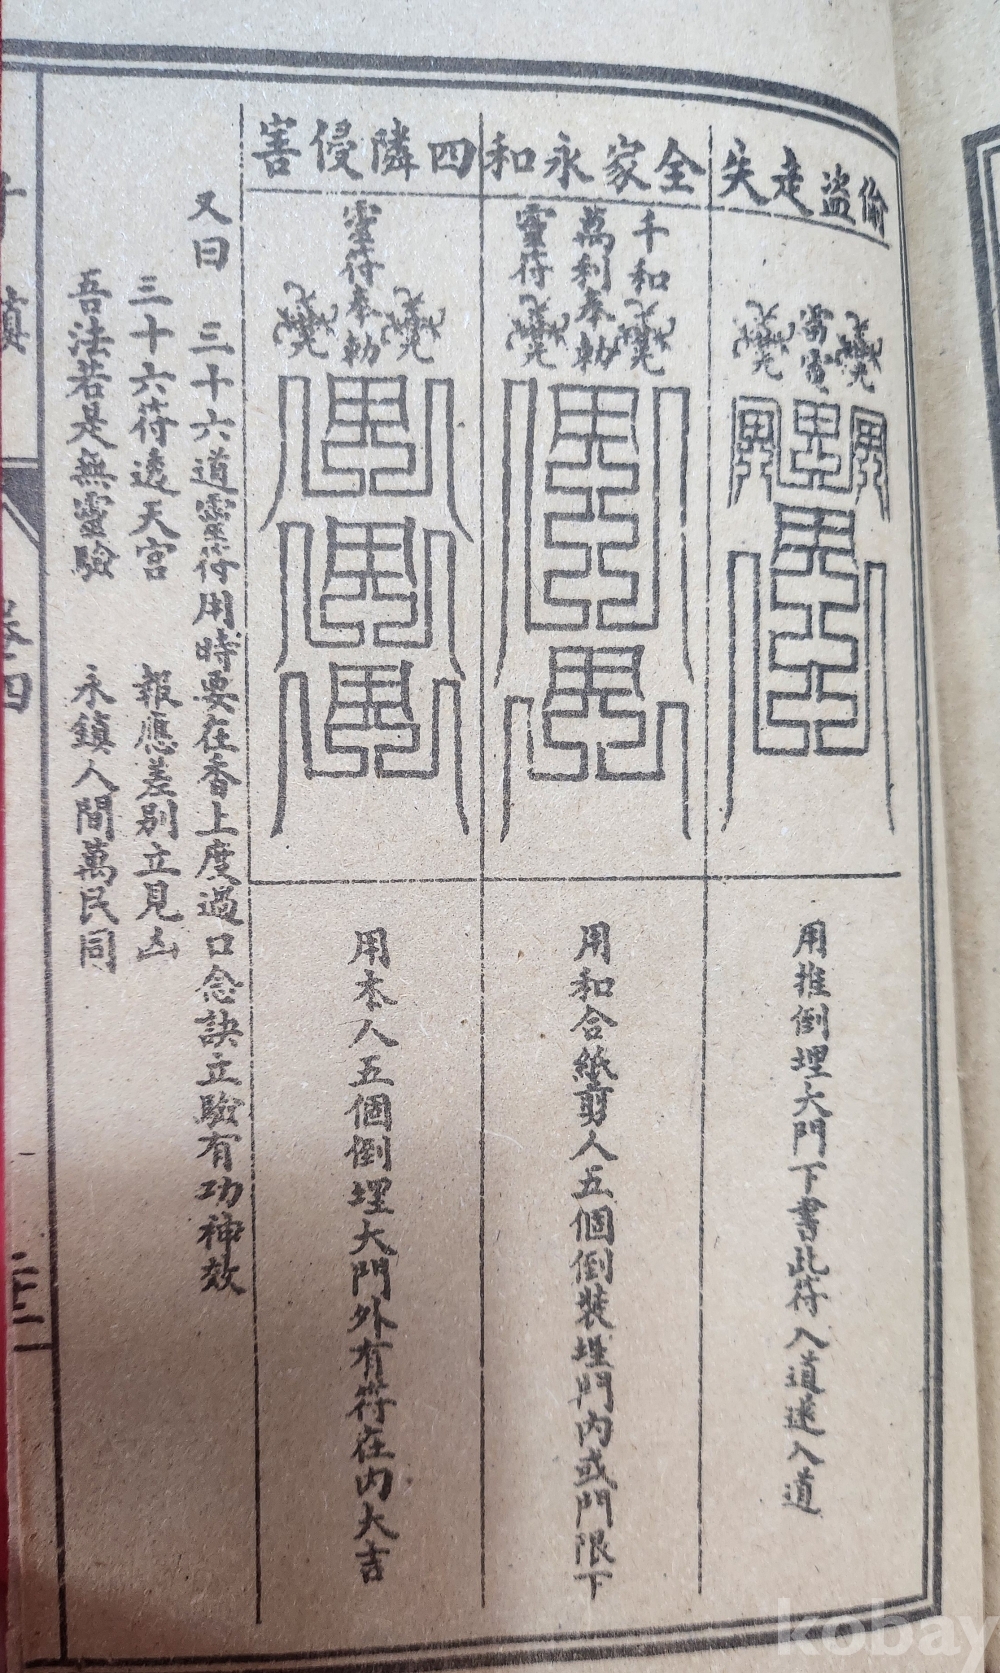 偷盜走失
雷電
用推倒埋大門下書此符入道送入道
全家永和
千和
萬利奉勅
靈符
用和合紙剪人五個倒裝埋門內或門限下
四隣侵害
靈符奉勅
用本人五個倒埋大門外有符在內大吉
又曰 三十六道靈符用時要在香上度過口念訣立驗有功神效
三十六符透天宮 報應差別立見凶
吾法若是無靈驗 永鎮人間萬民同
卷四
kobay